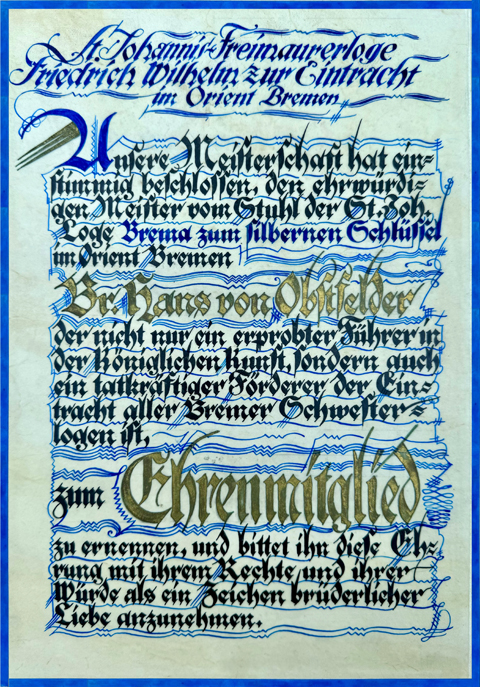 St. Johannis-Freimaurerloge
Friedrich Wilhelm zur Eintracht
im Orient Bremen
Unsere Meisterschaft hat ein=
stimmig beschlossen, den ehrwürdi=
gen Meister vom Stuhl der St. Joh.
Loge Brema zum silbernen Schlüssel
im Orient Bremen
Br. Hans von Obstfelder
der nicht nur ein erprobter Führer in
der Königlichen Kunst, sondern auch
ein tatkräftiger Förderer der Ein=
tracht aller Bremer Schwester=
logen ist,
zum Ehrenmitglied
zu ernennen, und bittet ihn diese Eh=
rung mit ihrem Rechte und ihrer
Würde als ein Zeichen brüderlicher
Liebe anzunehmen.